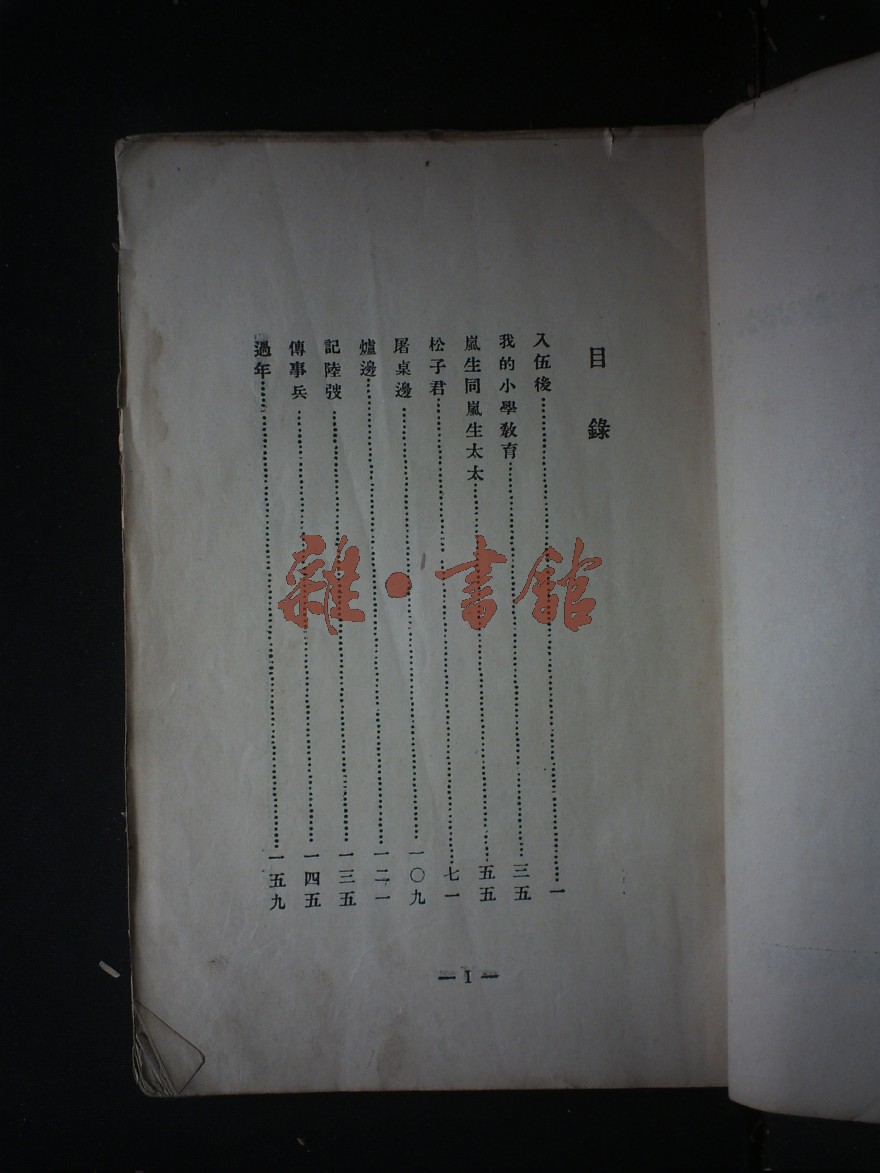 目錄
入伍後……一
我的小學教育……三五
嵐生同嵐生太太……五五
松子君……七一
屠桌邊……一〇九
爐邊……一二一
記陸弢……一三五
傳事兵……一四五
過年……一五九
— I —
雜·書館